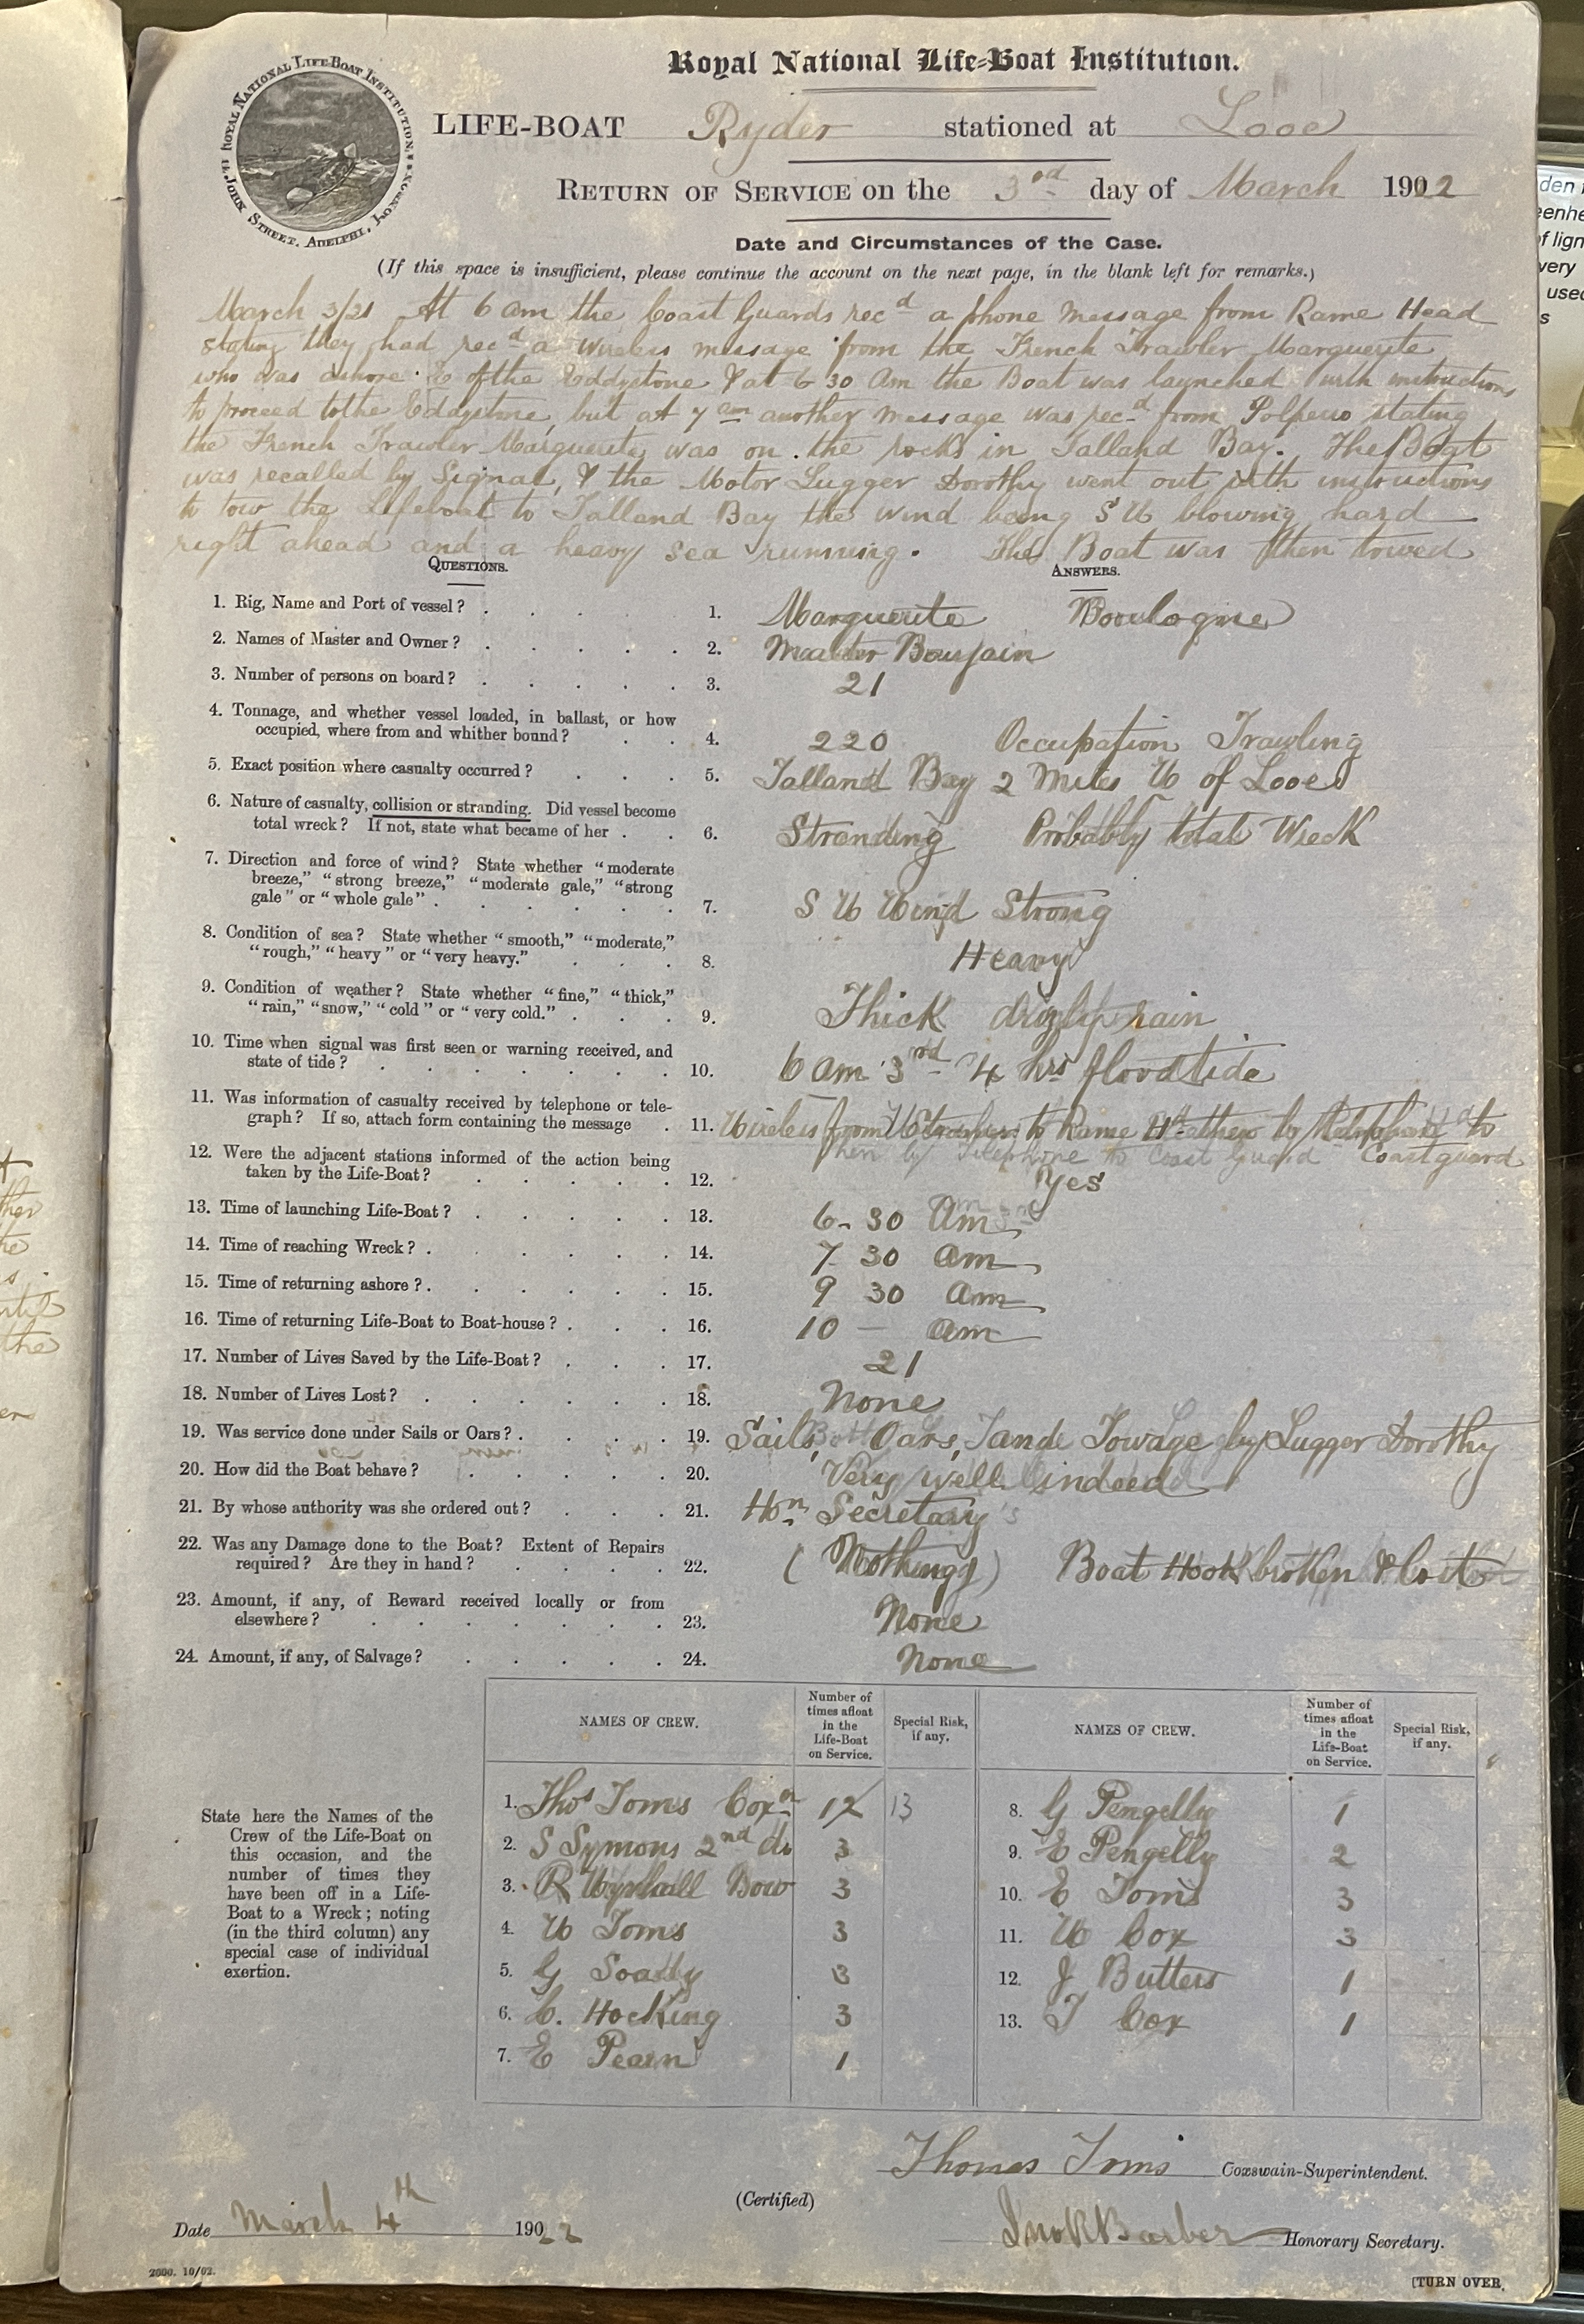 Royal National Life-Boat Institution.
ROYAL NATIONAL LIFE-BOAT INSTITUTION.
14 JOHN STREET, ADELPHI, LONDON.
LIFE-BOAT Ryder stationed at Looe
RETURN OF SERVICE on the 3rd day of March 1922
Date and Circumstances of the Case.
(If this space is insufficient, please continue the account on the next page, in the blank left for remarks.)
March 3/21 At 6 am the Coast Guards recd a phone message from Rame Head
stating they had recd a wireless message from the French Trawler Marguerite
who was ashore E of the Eddystone & at 6 30 Am the Boat was launched with instructions
to proceed to the Eddystone, but at 7 am another message was recd from Polperro stating
the French Trawler Marguerite was on the rocks in Talland Bay. The Boat
was recalled by Signal, & the Motor Lugger Dorothy went out with instructions
to tow the Lifeboat to Talland Bay the wind being S W blowing hard
right ahead and a heavy sea running. The Boat was then towed
QUESTIONS. ANSWERS.
1. Rig, Name and Port of vessel? 1. Marguerite Boulogne
2. Names of Master and Owner? 2. Master
3. Number of persons on board? 3. 21
4. Tonnage, and whether vessel loaded, in ballast, or how
occupied, where from and whither bound? 4. 220 Occupation Trawling
5. Exact position where casualty occurred? 5. Talland Bay 2 Miles W of Looe
6. Nature of casualty, collision or stranding. Did vessel become
total wreck? If not, state what became of her 6. Stranding Probably total Wreck
7. Direction and force of wind? State whether "moderate
breeze," "strong breeze," "moderate gale," "strong
gale" or "whole gale" 7. S W Wind Strong
8. Condition of sea? State whether "smooth," "moderate,"
"rough," "heavy" or "very heavy." 8. Heavy
9. Condition of weather? State whether "fine," "thick,"
"rain," "snow," "cold" or "very cold." 9. Thick drizzly rain
10. Time when signal was first seen or warning received, and
state of tide? 10. 6 am 3rd 4 hrs flood tide
11. Was information of casualty received by telephone or tele-
graph? If so, attach form containing the message 11. Wireless from to Rame Hd then by to
then by Telephone to Coast guard Coastguard
12. Were the adjacent stations informed of the action being
taken by the Life-Boat? 12. Yes
13. Time of launching Life-Boat? 13. 6-30 Am
14. Time of reaching Wreck? 14. 7 30 am
15. Time of returning ashore? 15. 9 30 am
16. Time of returning Life-Boat to Boat-house? 16. 10 — am
17. Number of Lives Saved by the Life-Boat? 17. 21
18. Number of Lives Lost? 18. None
19. Was service done under Sails or Oars? 19. Sails, Oars, and Towage by Lugger Dorothy
20. How did the Boat behave? 20. Very well indeed
21. By whose authority was she ordered out? 21. Hon Secretary
22. Was any Damage done to the Boat? Extent of Repairs
required? Are they in hand? 22. (Nothing) Boat Hook broken & lost
23. Amount, if any, of Reward received locally or from
elsewhere? 23. None
24. Amount, if any, of Salvage? 24. None
NAMES OF CREW. Number of times afloat in the Life-Boat on Service. Special Risk, if any. NAMES OF CREW. Number of times afloat in the Life-Boat on Service. Special Risk, if any.
State here the Names of the
Crew of the Life-Boat on
this occasion, and the
number of times they
have been off in a Life-
Boat to a Wreck; noting
(in the third column) any
special case of individual
exertion.
1. Thos Toms Coxn 12 13
2. S Symons 2nd do 3
3. R Wynhall Bow 3
4. W Toms 3
5. G Soady 3
6. C. Hocking 3
7. E Pearn 1
8. G Pengelly 1
9. E Pengelly 2
10. E Toms 3
11. W Cox 3
12. J Butters 1
13. T Cox 1
Thomas Toms Coxswain-Superintendent.
(Certified)
Date March 4th 1922 Jno R Barber Honorary Secretary.
2000. 10/02. [TURN OVER.